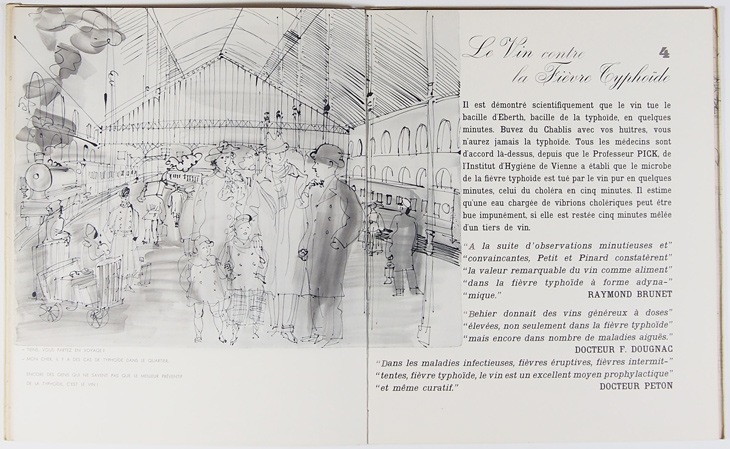 Le Vin contre
4
la Fièvre Typhoïde
Il est démontré scientifiquement que le vin tue le
bacille d'Eberth, bacille de la typhoïde, en quelques
minutes. Buvez du Chablis avec vos huitres, vous
n'aurez jamais la typhoïde. Tous les médecins sont
d'accord là-dessus, depuis que le Professeur PICK, de
l'Institut d'Hygiène de Vienne a établi que le microbe
de la fièvre typhoïde est tué par le vin pur en quelques
minutes, celui du choléra en cinq minutes. Il estime
qu'une eau chargée de vibrions cholériques peut être
bue impunément, si elle est restée cinq minutes mêlée
d'un tiers de vin.
"A la suite d'observations minutieuses et"
"convaincantes, Petit et Pinard constatèrent"
"la valeur remarquable du vin comme aliment"
"dans la fièvre typhoïde à forme adyna-"
"mique." RAYMOND BRUNET
"Behier donnait des vins généreux à doses"
"élevées, non seulement dans la fièvre typhoïde"
"mais encore dans nombre de maladies aiguës."
DOCTEUR F. DOUGNAC
"Dans les maladies infectieuses, fièvres éruptives, fièvres intermit-"
"tentes, fièvre typhoïde, le vin est un excellent moyen prophylactique"
"et même curatif." DOCTEUR PETON
— TIENS, VOUS PARTEZ EN VOYAGE ?
— MON CHER, IL Y A UN CAS DE TYPHOÏDE DANS LE QUARTIER.
ENCORE DES GENS QUI NE SAVENT PAS QUE LE MEILLEUR PRÉVENTIF
DE LA TYPHOÏDE, C'EST LE VIN.